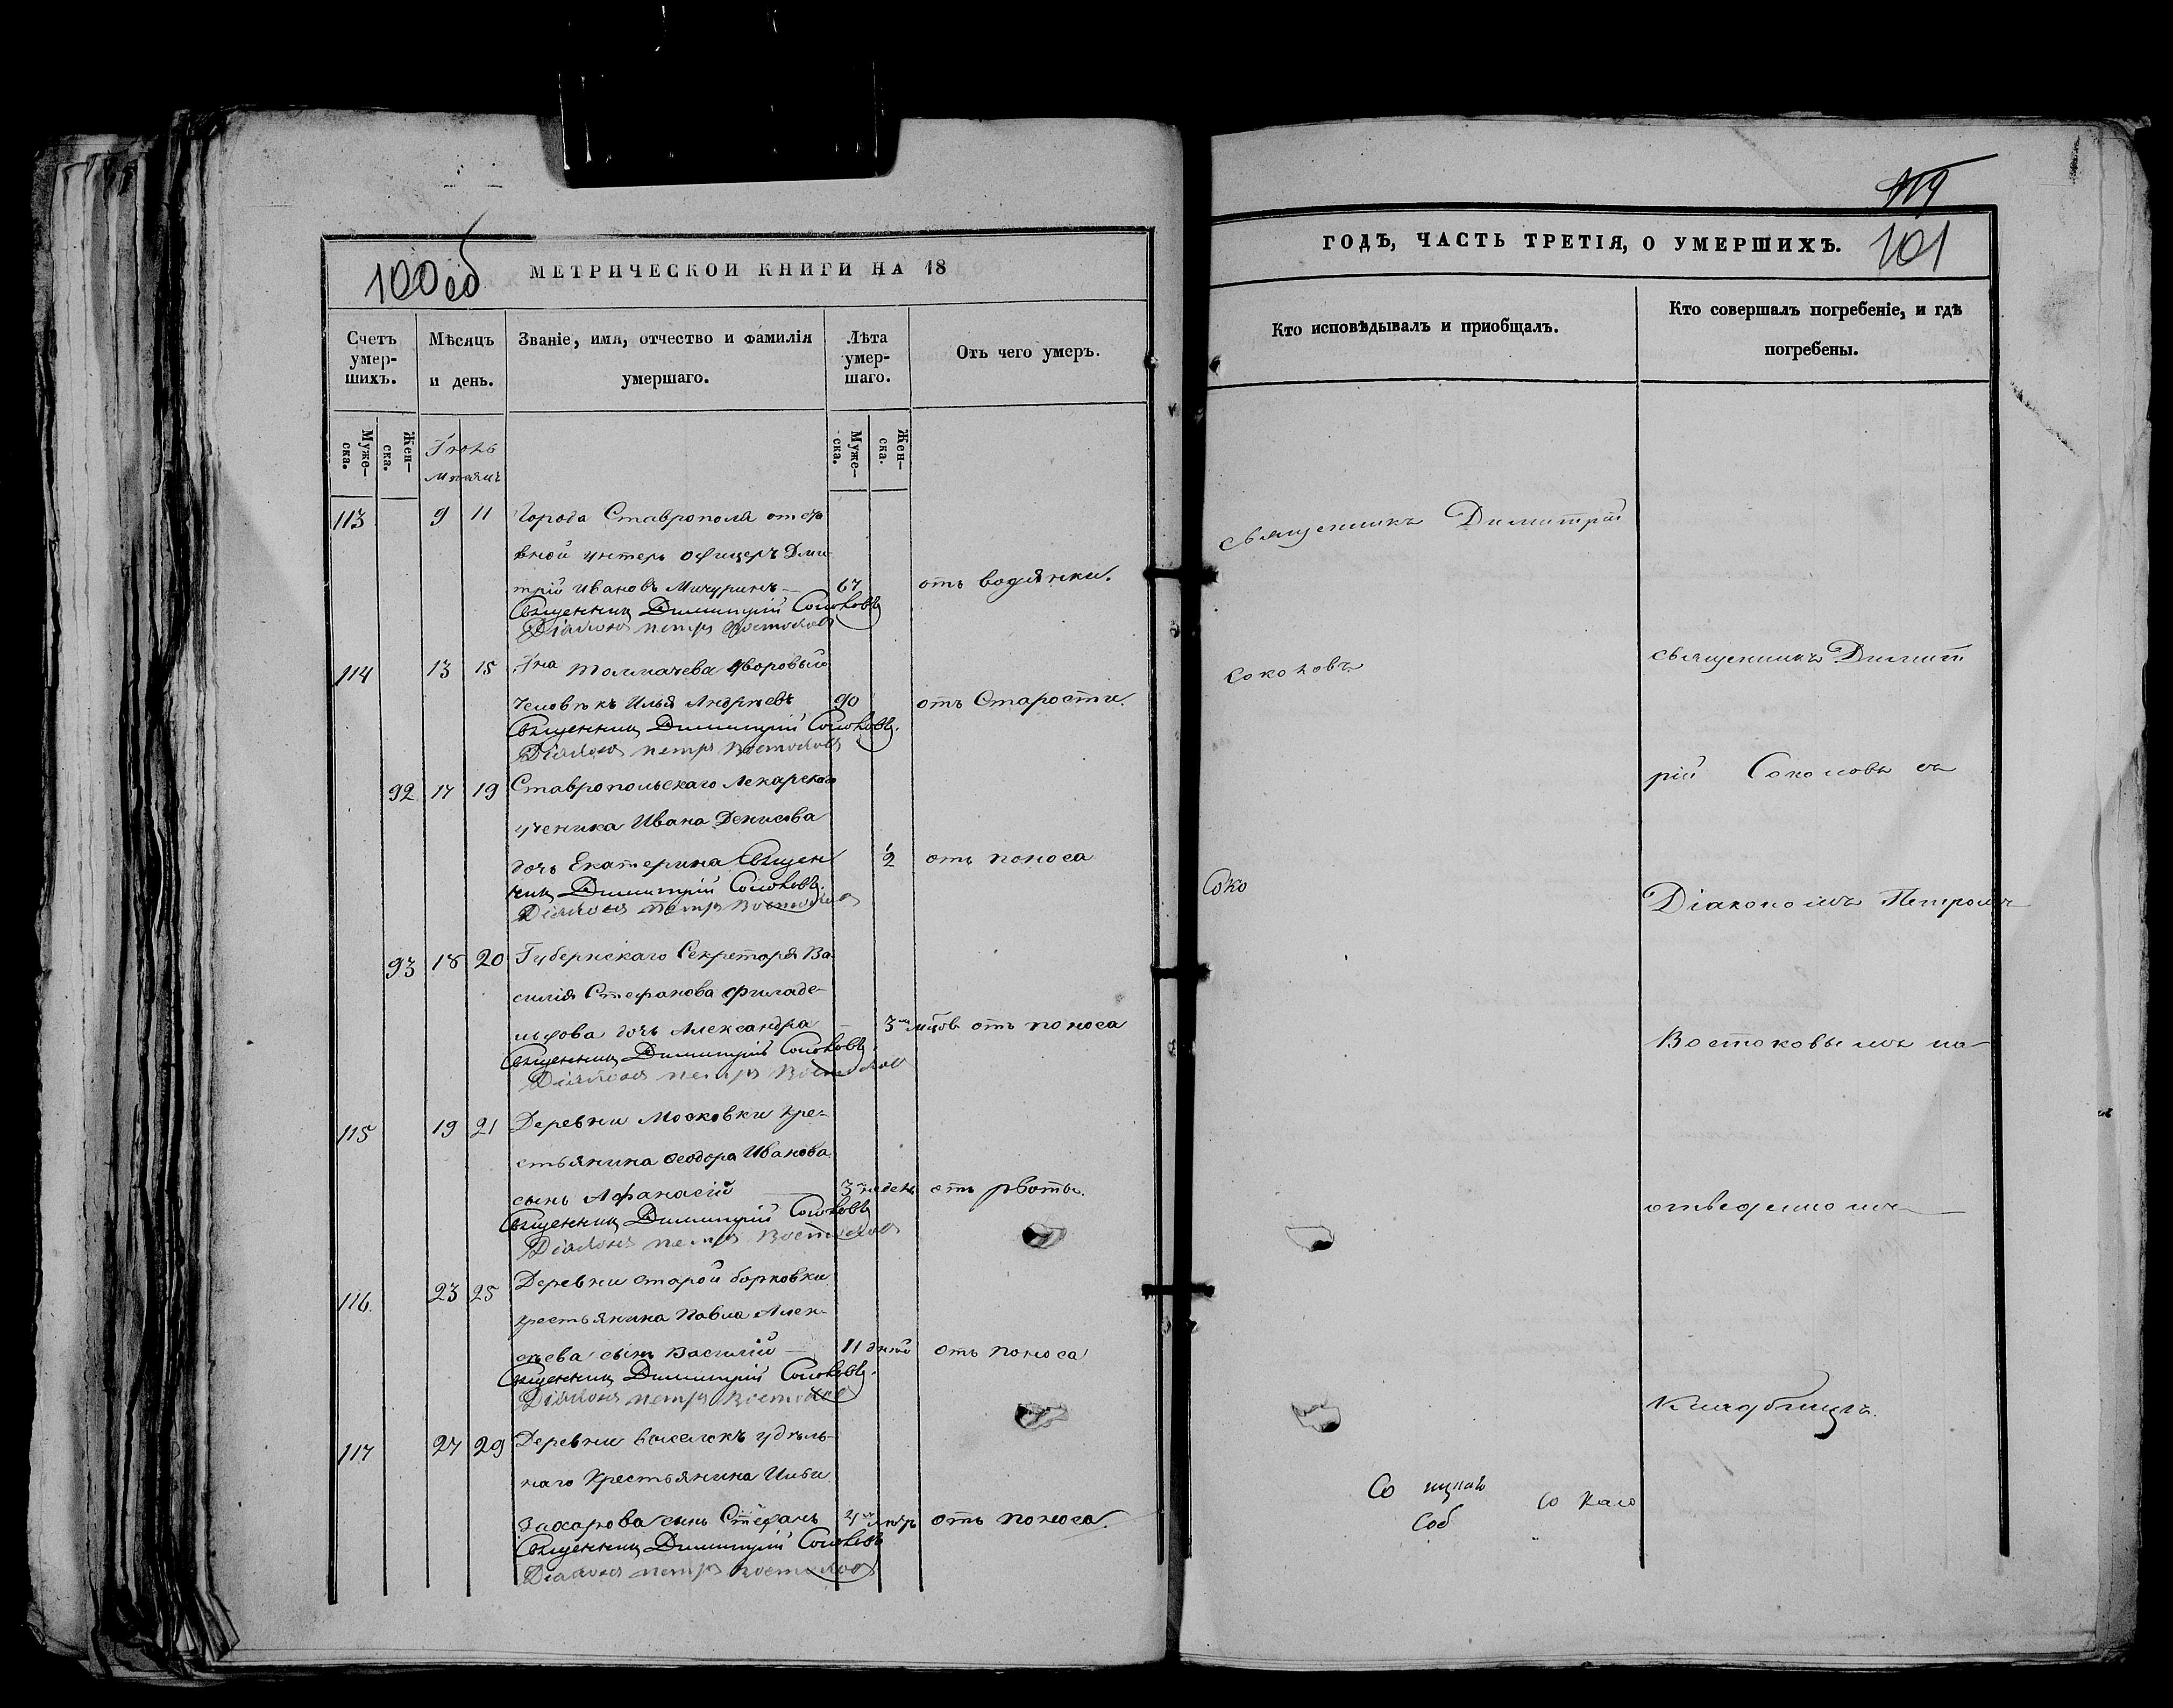 100 об
МЕТРИЧЕСКОЙ КНИГИ НА 18
Счетъ умер-шихъ.
Мѣсяцъ и день.
Званіе, имя, отчество и фамилія умершаго.
Лѣта умер-шаго.
Отъ чего умеръ.
Муже-ска.
Жен-ска.
Муже-ска.
Жен-ска.
Іюнь
мѣсяцъ
113 9 11 Города Ставрополя отста
вной унтеръ офицеръ Дми-
трій Ивановъ Мичуринъ — 67 отъ водянки.
Священникъ Димитрій Соколовъ
Діаконъ Петръ Востоковъ
114 13 15 Г-на Толмачева дворовый
человѣкъ Илья Андреевъ 90 отъ Старости.
Священникъ Димитрій Соколовъ.
Діаконъ Петръ Востоковъ
92 17 19 Ставропольскаго Лекарскаго
ученика Ивана Денисова
дочь Екатерина Священ 1/2 отъ поноса
никъ Димитрій Соколовъ.
Діаконъ Петръ Востоковъ
93 18 20 Губернскаго Секретаря Ва
силія Стефанова Филаде-
льфова дочь Александра — 3 мцов отъ поноса
Священникъ Димитрій Соколовъ.
Діаконъ Петръ Востоковъ
115 19 21 Деревни Московки кре-
стьянина Ѳеодора Иванова
сынъ Афанасій — 3 недѣль отъ рвоты.
Священникъ Димитрій Соколовъ
Діаконъ Петръ Востоковъ
116. 23 25 Деревни старой борковки
крестьянина Павла Алек-
сѣева сынъ Василій — 11 дней отъ поноса
Священникъ Димитрій Соколовъ.
Діаконъ Петръ Востоковъ
117 27 29 Деревни выселокъ удѣль-
наго крестьянина
Захарова сынъ Стефанъ отъ поноса.
Священникъ Димитрій Соколовъ
Діаконъ Петръ Востоковъ
119
ГОДЪ, ЧАСТЬ ТРЕТІЯ, О УМЕРШИХЪ.
101
Кто исповѣдывалъ и приобщалъ.
Кто совершалъ погребеніе, и гдѣ погребены.
священникъ Димитрій
Соколовъ
Соко
священникъ Димит
рій Соколовъ съ
Діакономъ Петромъ
Востоковымъ на
отведенномъ
кладбищѣ.
Со
Соб